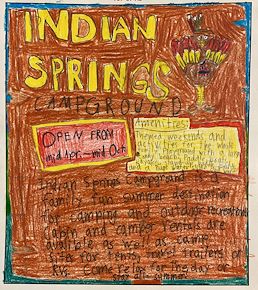 INDIAN
SPRINGS
CAMPGROUND
OPEN FROM
mid Apr. - mid Oct.
Amenities:
Themed weekends and
activities for the whole
family.
Indian Springs Campground is a
family fun summer destination
for camping and outdoor recreation.
Cabin and camper rentals are
availble as well as camp
sites for tents, travel trailers, or
RVs. Come relax for the day or